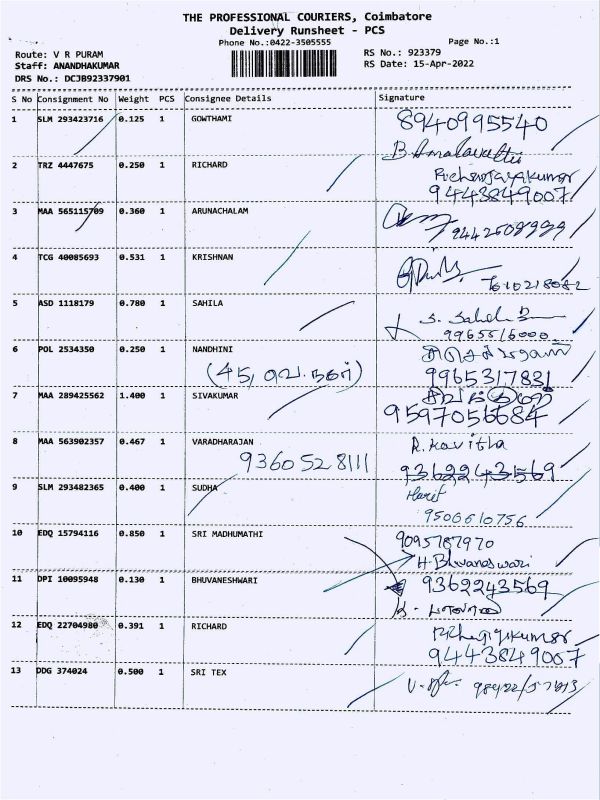 THE PROFESSIONAL COURIERS, Coimbatore
Delivery Runsheet - PCS
Phone No.:0422-3505555
Page No.:1
Route: V R PURAM
RS No.: 923379
Staff: ANANDHAKUMAR
RS Date: 15-Apr-2022
DRS No.: DCJB92337901
S No Consignment No Weight PCS Consignee Details Signature
1 SLM 293423716 0.125 1 GOWTHAMI 8940995540
2 TRZ 4447675 0.250 1 RICHARD
9443849007
3 MAA 565115709 0.360 1 ARUNACHALAM
4 TCG 40085693 0.531 1 KRISHNAN
5 ASD 1118179 0.780 1 SAHILA
6 POL 2534350 0.250 1 NANDHINI
(45, வ.வ. நகர்) 9965317831
7 MAA 289425562 1.400 1 SIVAKUMAR
9597056684
8 MAA 563902357 0.467 1 VARADHARAJAN R. Kavitha
9360528111 9362243569
9 SLM 293482365 0.400 1 SUDHA
9506610756
10 EDQ 15794116 0.850 1 SRI MADHUMATHI 9095787970
H. Bhuvaneswari
11 DPI 10095948 0.130 1 BHUVANESHWARI 9362243569
12 EDQ 22704980 0.391 1 RICHARD
9443849007
13 DDG 374024 0.500 1 SRI TEX